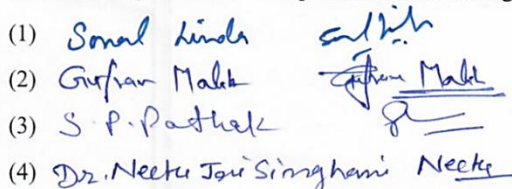 (1) Sonal Linda
(2) Gufran Malik Gufran Malik
(3) S. P. Pathak
(4) Dr. Neetu Jain Singhani Neetu